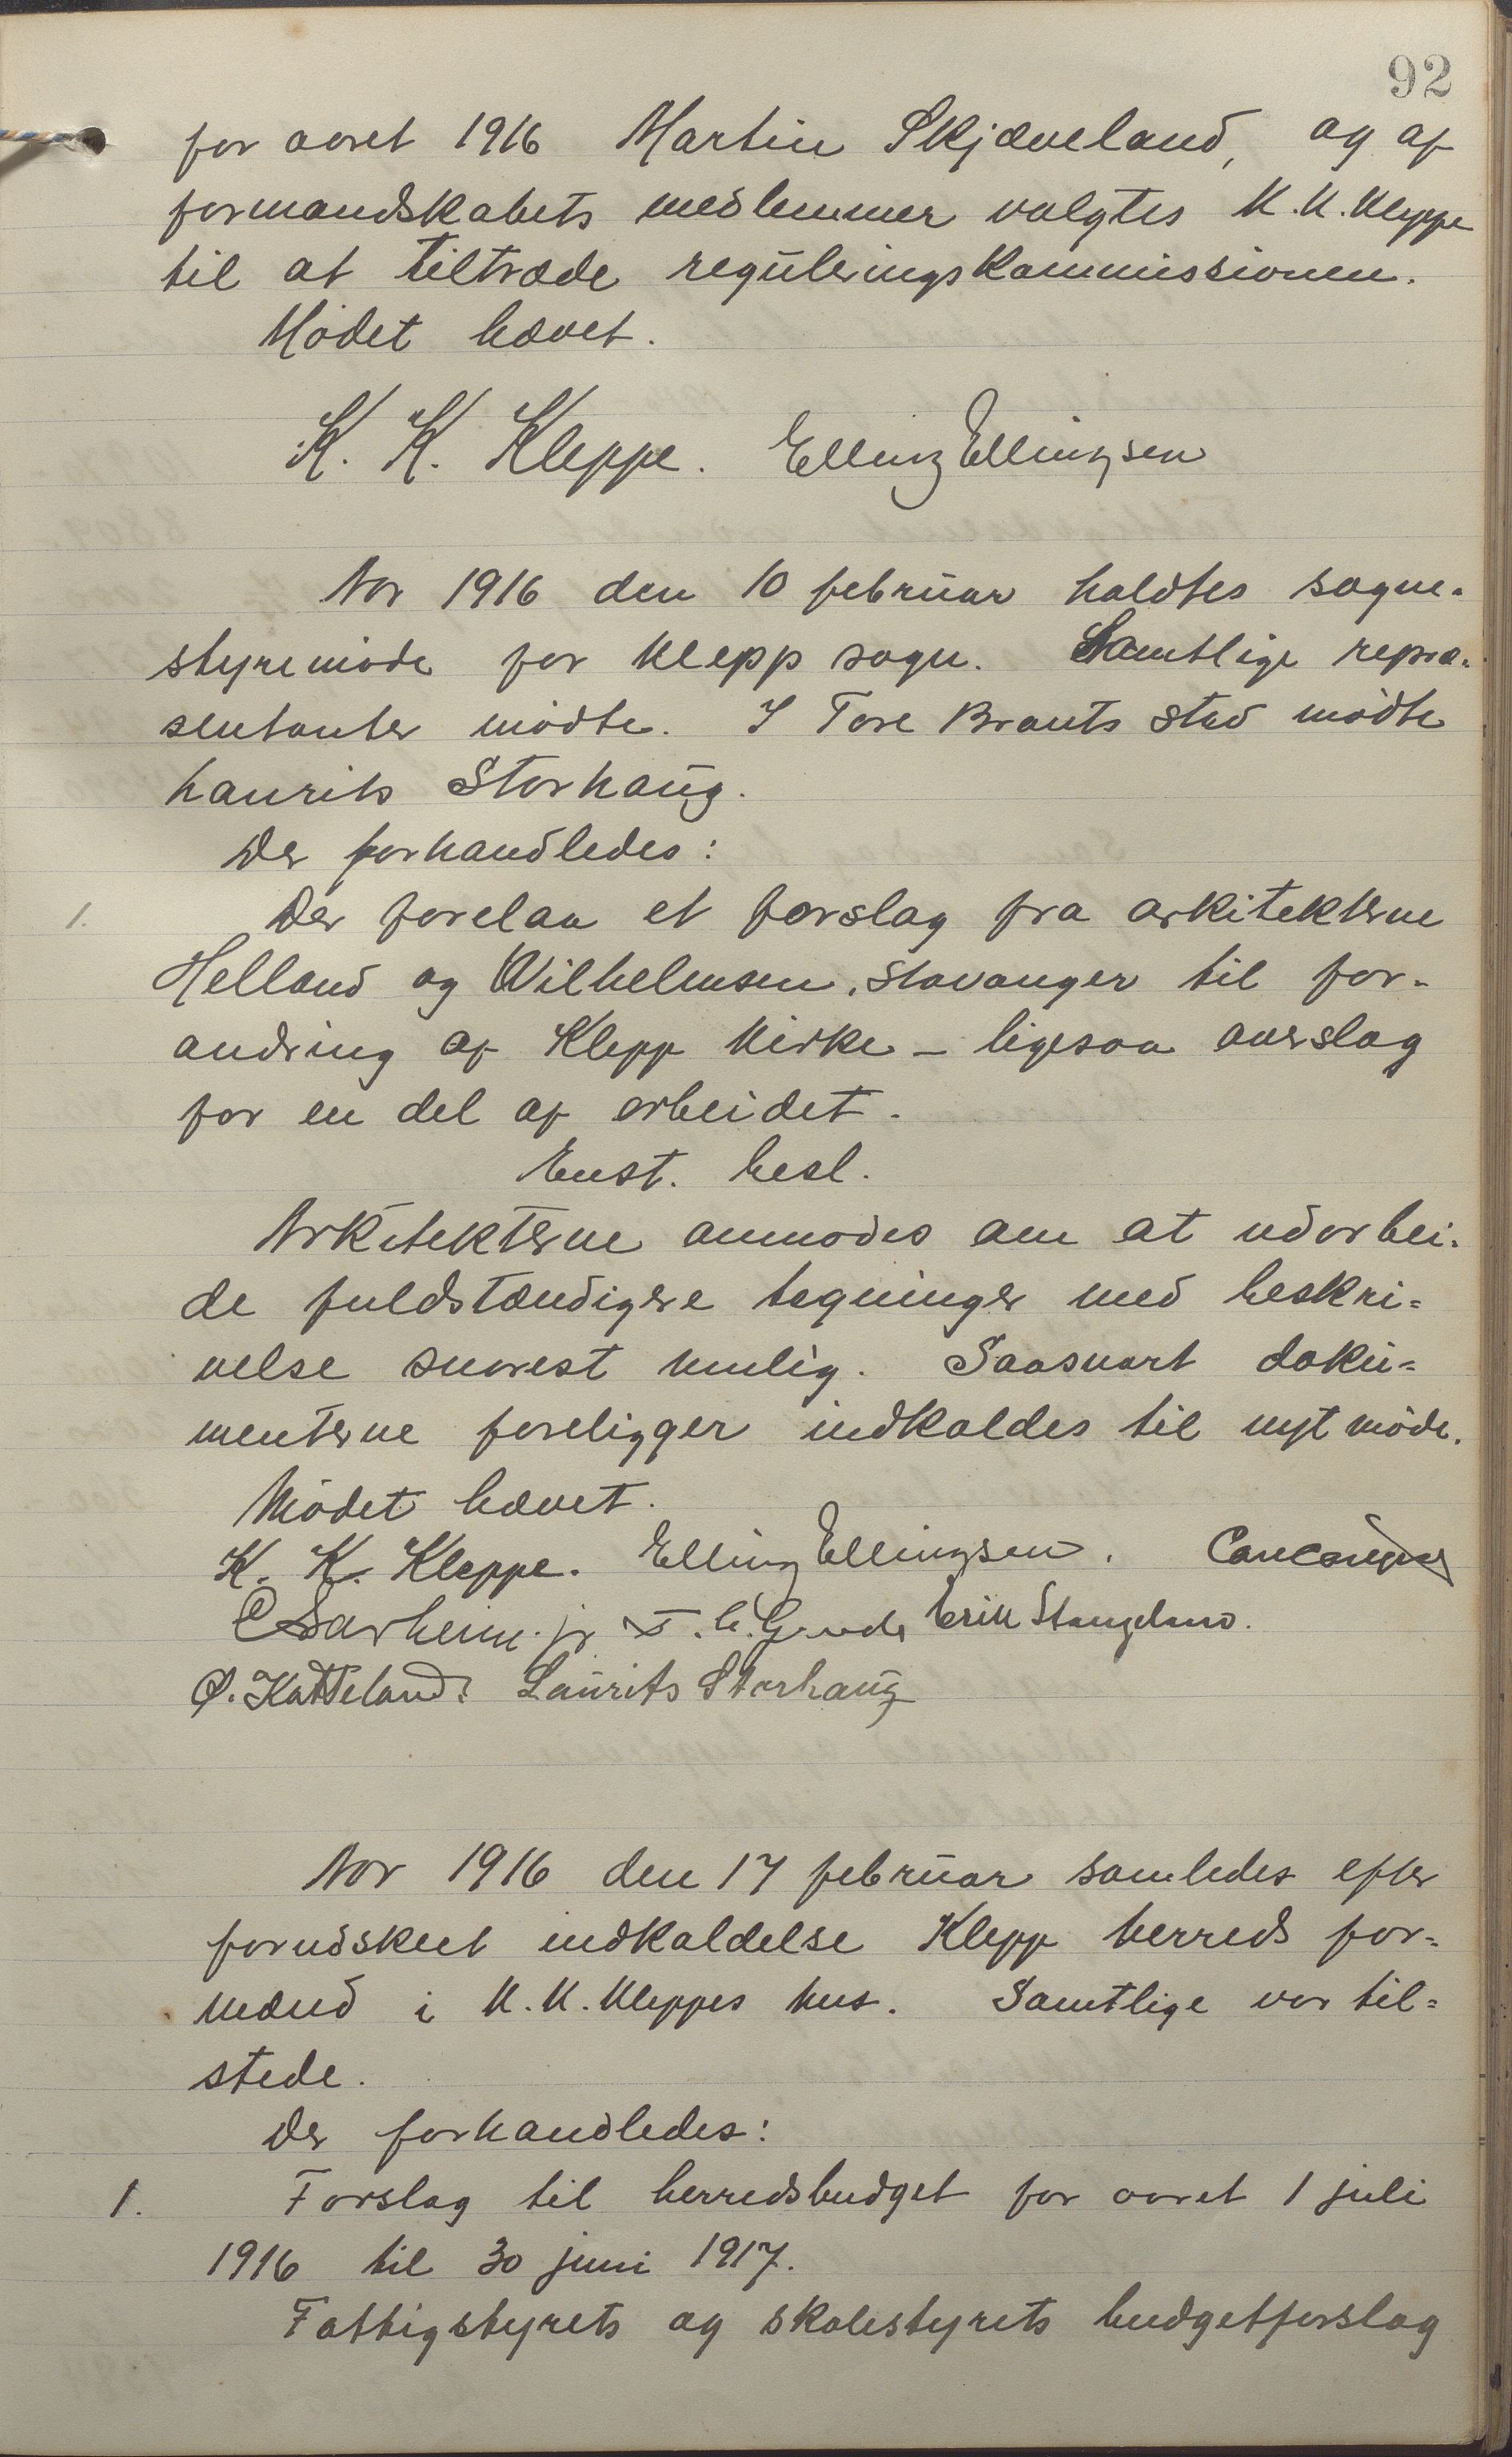 92
for aaret 1916 Martin Skjæveland, og af
formandskabets medlemmer valgtes K. K. Kleppe
til at tiltræde reguleringskommissionen.
Mødet hævet.
K. K. Kleppe. Elling Ellingsen
Aar 1916 den 10 februar holdtes sogne-
styremøde for Klepp sogn. Samtlige repræ-
sentanter mødte. I Tore Brauts sted mødte
Laurits Storhaug.
Der forhandledes:
1. Der forelaa et forslag fra arkitekterne
Helland og Wilhelmsen, Stavanger til for-
andring af Klepp kirke – ligesaa overslag
for en del af arbeidet.
Enst. besl.
Arkitekterne anmodes om at udarbei-
de fuldstændigere tegninger med beskri-
velse snarest mulig. Saasnart doku-
menterne foreligger indkaldes til nyt møde.
Mødet hævet.
K. K. Kleppe. Elling Ellingsen.
Erik Stangeland.
Ø. Katteland. Laurits Storhaug
Aar 1916 den 17 februar samledes efter
forudskeet indkaldelse Klepp herreds for-
mænd i K. K. Kleppes hus. Samtlige var til-
stede.
Der forhandledes:
1. Forslag til herredsbudget for aaret 1 juli
1916 til 30 juni 1917.
Fattigstyrets og skolestyrets budgetforslag